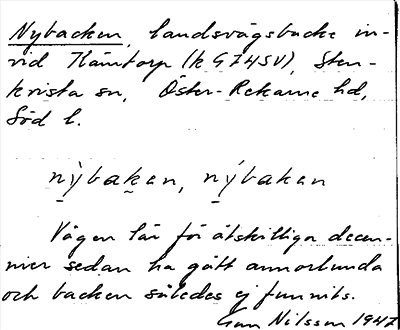 Nybacken, landsvägsbacke in-
vid Flämtorp (k G7HSV), Sten-
kvista sn, Öster-Rekarne hd,
Söd l.
nỳbaḵan, nýbakan
Vägen lär för åtskilliga decen-
nier sedan ha gått annorlunda
och backen således ej funnits.
Gun Nilsson 1947